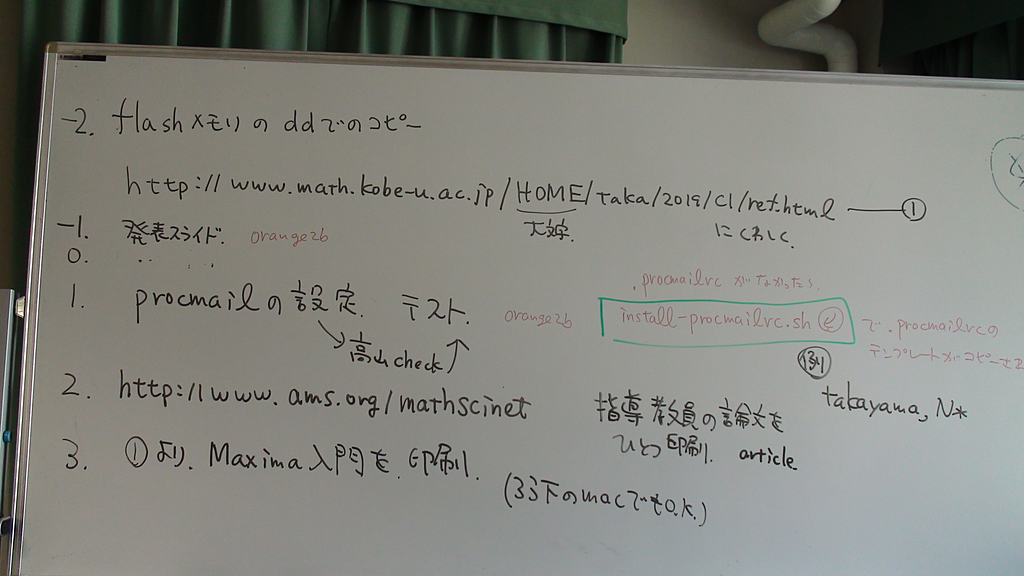 -2. flashメモリの ddでのコピー
http://www.math.kobe-u.ac.jp/HOME/taka/2019/C1/ref.html ——①
大文字. にくわしく.
-1. 発表スライド. orange2b
0. .. .. ..
.procmailrc がなかったら.
1. procmailの設定. テスト. orange2b install-procmailrc.sh で .procmailrcの
テンプレートがコピーさ
高山check
例
2. http://www.ams.org/mathscinet 指導教員の論文を takayama, N*
ひとつ印刷. article
3. ①より. Maxima入門を.印刷.
(下のmacでもo.k.)